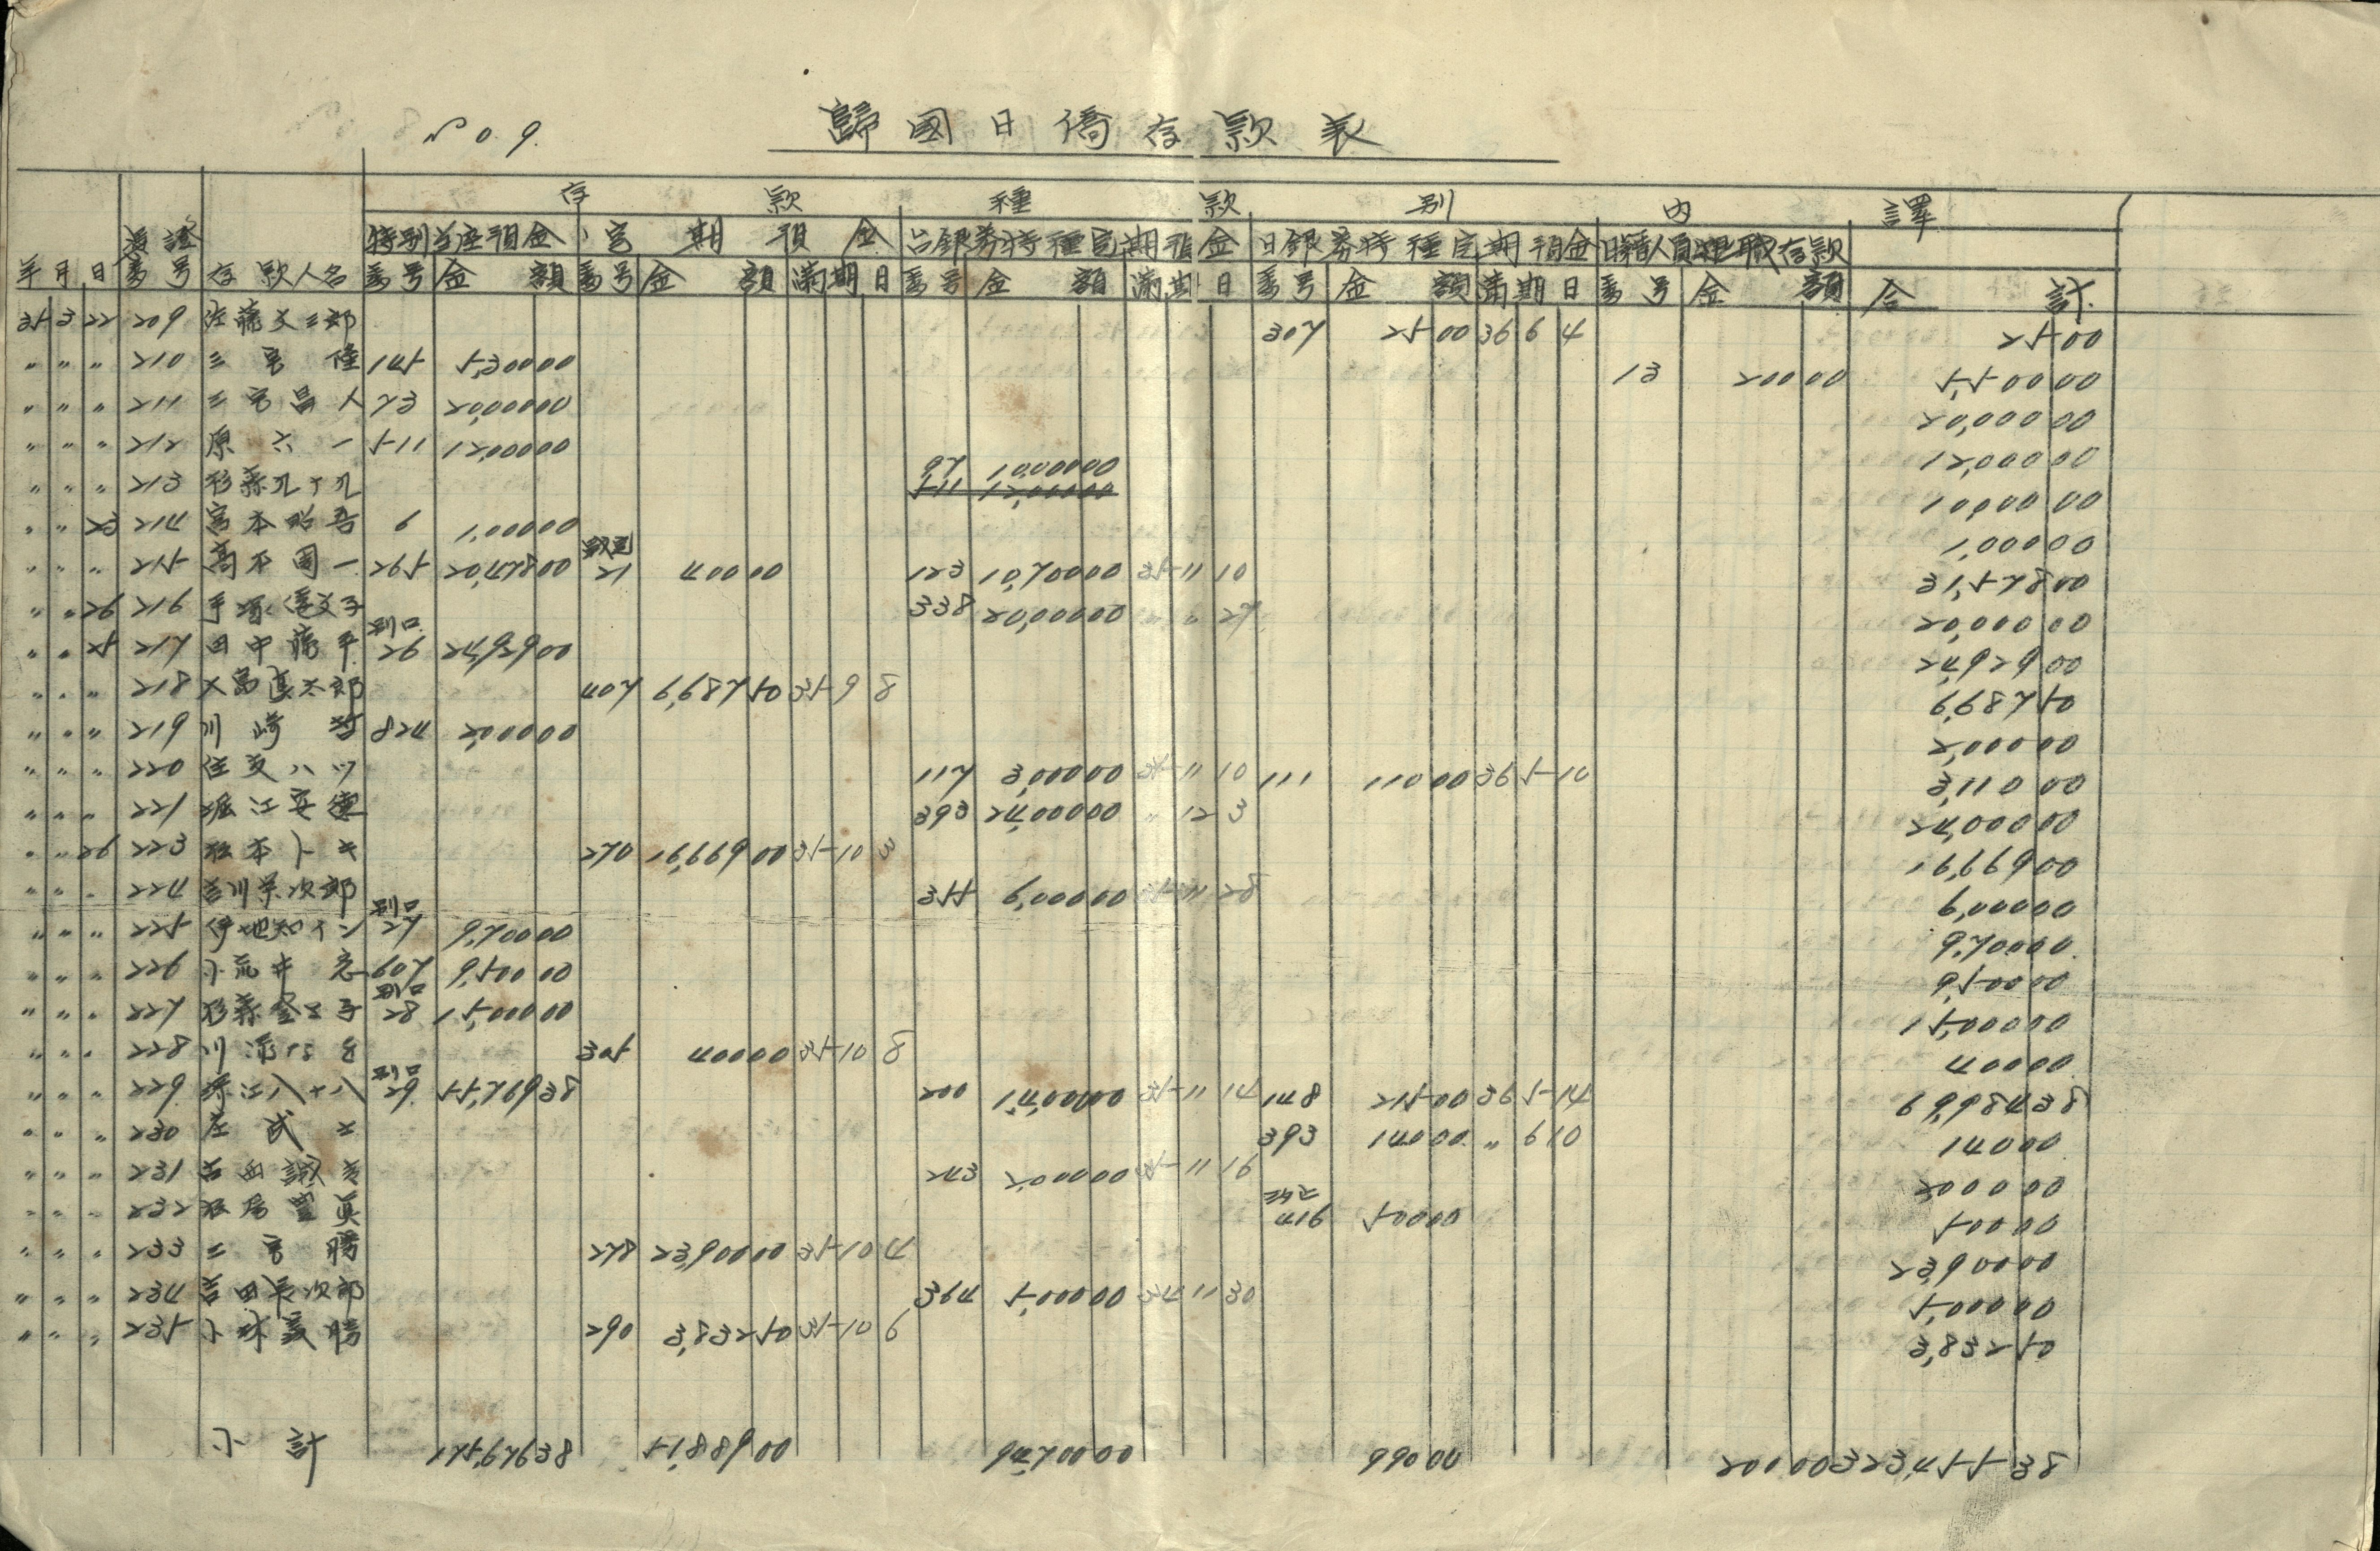 No. 9.
歸國日僑存款表
存款種款別內譯
憑證 特別当座預金 定期預金 台銀券特種定期預金 日銀券特種定期預金 日籍人員退職存款
年 月 日 番号 存款人名 番号 金額 番号 金額 満期日 番号 金額 満期日 番号 金額 満期日 番号 金額 合計
35 3 22 209 佐藤文三郎 307 25 00 36 6 4 25 00
〃 〃 〃 210 三宮 隆 145 5,300 00 13 200 00 5,500 00
〃 〃 〃 211 三宮昌人 73 20,000 00 20,000 00
〃 〃 〃 212 原六一 511 12,000 00 12,000 00
〃 〃 〃 213 97 10,000 00 10,000 00
511 12,000 00
〃 〃 23 214 宮本昭吾 6 1,000 00 1,000 00
〃 〃 〃 215 高木国一 265 20,478 00 21 400 00 123 10,700 00 35 11 10 31,578 00
〃 〃 26 216 338 20,000 00 〃 〃 29 20,000 00
〃 〃 25 217 田中藤平 別口 26 24,929 00 24,929 00
〃 〃 〃 218 大島真太郎 407 6,687 50 35 9 8 6,687 50
〃 〃 〃 219 川崎 824 2,000 00 2,000 00
〃 〃 〃 220 住友ハツ 117 3,000 00 35 11 10 111 110 00 36 5 10 3,110 00
〃 〃 〃 221 堀江安 393 24,000 00 〃 12 3 24,000 00
〃 〃 26 223 松本トキ 270 16,669 00 35 10 3 16,669 00
〃 〃 〃 224 吉川栄次郎 355 6,000 00 11 28 6,000 00
〃 〃 〃 225 伊地知イン 別口 27 9,700 00 9,700 00
〃 〃 〃 226 小荒井 607 9,500 00 9,500 00
〃 〃 〃 227 別口 28 15,000 00 15,000 00
〃 〃 〃 228 川添 305 400 00 35 10 8 400 00
〃 〃 〃 229 江八十八 別口 29 55,769 38 200 14,000 00 35 11 14 148 215 00 36 5 14 69,984 38
〃 〃 〃 230 庄武 393 140 00 〃 6 10 140 00
〃 〃 〃 231 243 2,000 00 35 11 16 2000 00
〃 〃 〃 232 416 500 00 500 00
〃 〃 〃 233 三宮 勝 278 23,900 00 35 10 4 23,900 00
〃 〃 〃 234 吉田長次郎 364 5,000 00 34 11 30 5,000 00
〃 〃 〃 235 小林義勝 290 3,832 50 35 10 6 3,832 50
小計 175,676 38 51,889 00 94,700 00 990 00 200 00 323,455 38